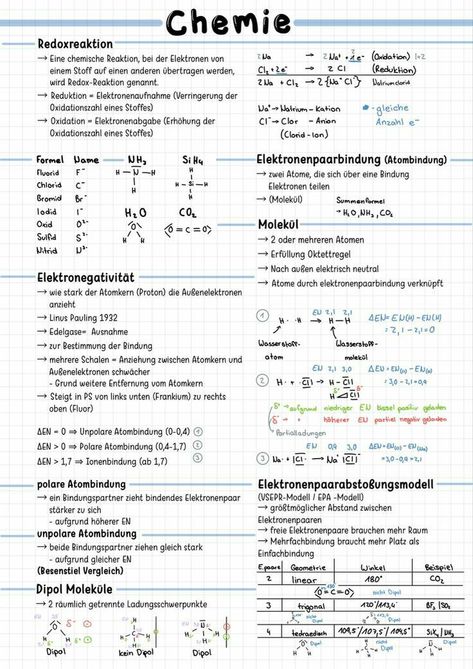 Chemie
Redoxreaktion
→ Eine chemische Reaktion, bei der Elektronen von
einem Stoff auf einen anderen übertragen werden,
wird Redox-Reaktion genannt.
→ Reduktion = Elektronenaufnahme (Verringerung der
Oxidationszahl eines Stoffes)
→ Oxidation = Elektronenabgabe (Erhöhung der
Oxidationszahl eines Stoffes)
2Na → 2Na⁺ + 2e⁻ (Oxidation)
Cl₂ + 2e⁻ → 2 Cl⁻ (Reduktion)
2Na + Cl₂ → 2{Na⁺Cl⁻} Natriumchlorid
Na⁺ → Natrium-Kation
Cl⁻ → Clor - Anion
(Clorid-Ion)
• - gleiche
Anzahl e⁻
Formel Name NH₃ SiH₄
Fluorid F⁻
Chlorid C⁻
Bromid Br⁻
Iodid I⁻ H₂O CO₂
Oxid O²⁻
Sulfid S²⁻
Nitrid N³⁻
Elektronenpaarbindung (Atombindung)
→ zwei Atome, die sich über eine Bindung
Elektronen teilen
→ (Molekül) Summenformel
→ H₂O, NH₃, CO₂
Molekül
→ 2 oder mehreren Atomen
→ Erfüllung Oktettregel
→ Nach außen elektrisch neutral
→ Atome durch elektronenpaarbindung verknüpft
Elektronegativität
→ wie stark der Atomkern (Proton) die Außenelektronen
anzieht
→ Linus Pauling 1932
→ Edelgase= Ausnahme
→ zur Bestimmung der Bindung
→ mehrere Schalen = Anziehung zwischen Atomkern und
Außenelektronen schwächer
- Grund weitere Entfernung vom Atomkern
→ Steigt in PS von links unten (Frankium) zu rechts
oben (Fluor)
ΔEN = 0 ⇒ Unpolare Atombindung (0-0,4) ①
ΔEN > 0 ⇒ Polare Atombindung (0,4-1,7) ②
ΔEN > 1,7 ⇒ Ionenbindung (ab 1,7) ③
EN 2,1 2,1 ΔEN = EN(H) - EN(H)
① H· ·H → H-H = 2,1 - 2,1 = 0
Wasserstoff- Wasserstoff-
atom molekül
EN 2,1 3,0
② H· + ·Cl → H-Cl = 3,0 - 2,1 = 0,9
δ⁺ → aufgrund niedriger EN bissel positiv geladen
δ⁻ → " höherer EN partiel negativ geladen
→ Partialladungen
EN 0,9 3,0
③ Na· + ·Cl → Na⁺ |Cl|⁻ = 3,0 - 0,9 = 2,1
polare Atombindung
→ ein Bindungspartner zieht bindendes Elektronenpaar
stärker zu sich
- aufgrund höherer EN
unpolare Atombindung
→ beide Bindungspartner ziehen gleich stark
- aufgrund gleicher EN
(Besenstiel Vergleich)
Dipol Moleküle
→ 2 räumlich getrennte Ladungsschwerpunkte
Dipol kein Dipol Dipol
Elektronenpaarabstoßungsmodell
(VSEPR-Modell / EPA -Modell)
→ größtmöglicher Abstand zwischen
Elektronenpaaren
→ freie Elektronenpaare brauchen mehr Raum
→ Mehrfachbindung braucht mehr Platz als
Einfachbindung
E.paare Geometrie Winkel Beispiel
2 linear 180° CO₂
O=C=O nicht Dipol
3 trigonal
nicht Dipol Dipol
4 tetraedisch 109,5°/107,5°/104,5°
nicht Dipol Dipol Dipol